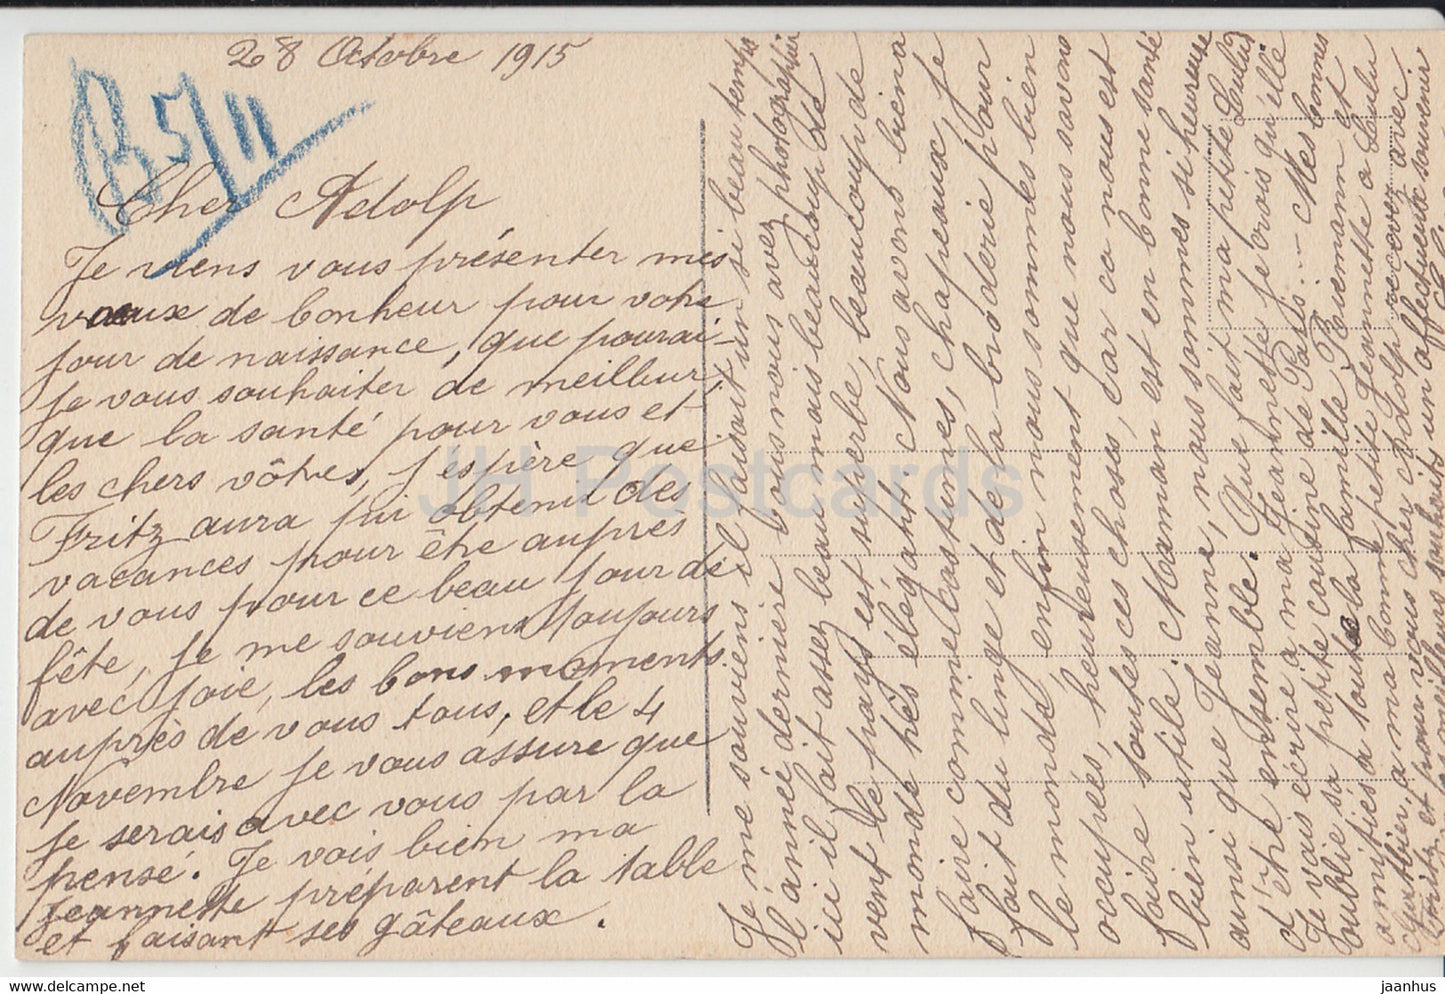 28 Octobre 1915
B 5/11
Cher Adolp
Je viens vous présenter mes
vœux de bonheur pour votre
jour de naissance, que pourai-
je vous souhaiter de meilleur,
que la santé pour vous et
les chers vôtres, j'espère que
Fritz aura pu obtenu des
vacances pour être aupres
de vous pour ce beau jour de
fête, je me souviens toujours
avec joie, les bons moments
auprès de vous tous, et le 4
Novembre je vous assure que
je serais avec vous par la
pensé. Je vois bien ma
Jeannette préparent la table
et faisant ses gâteaux.
Je me souviens il faisait un si beau temps
l'année dernière vous nous avez photographier
ici il fait assez beau mais beaucoup de
vent le pays est superbe, beaucoup de
monde très élégant. Nous avons bien a
faire comme costumes, chapeaux je
fait du linge et de la broderie pour
le monde enfin nous sommes bien
occupées, heureusement que nous savons
faire toutes ces choses, car ca nous est
bien utile. Maman est en bonne santé
ainsi que Jeanne, nous sommes si heureuse
d'être ensemble. Que fait ma petite Lulu
Je vais écrire a ma Jeannette je crois qu'elle
oublie sa petite cousine de Paris... Mes bonnes
amitiés a toute la famille et
a ma bonne petite Jeannette a Lulu
pour vous cher Adolp recevez avec
meilleurs souhaits un affectueux souvenir
JH Postcards
jaanhus